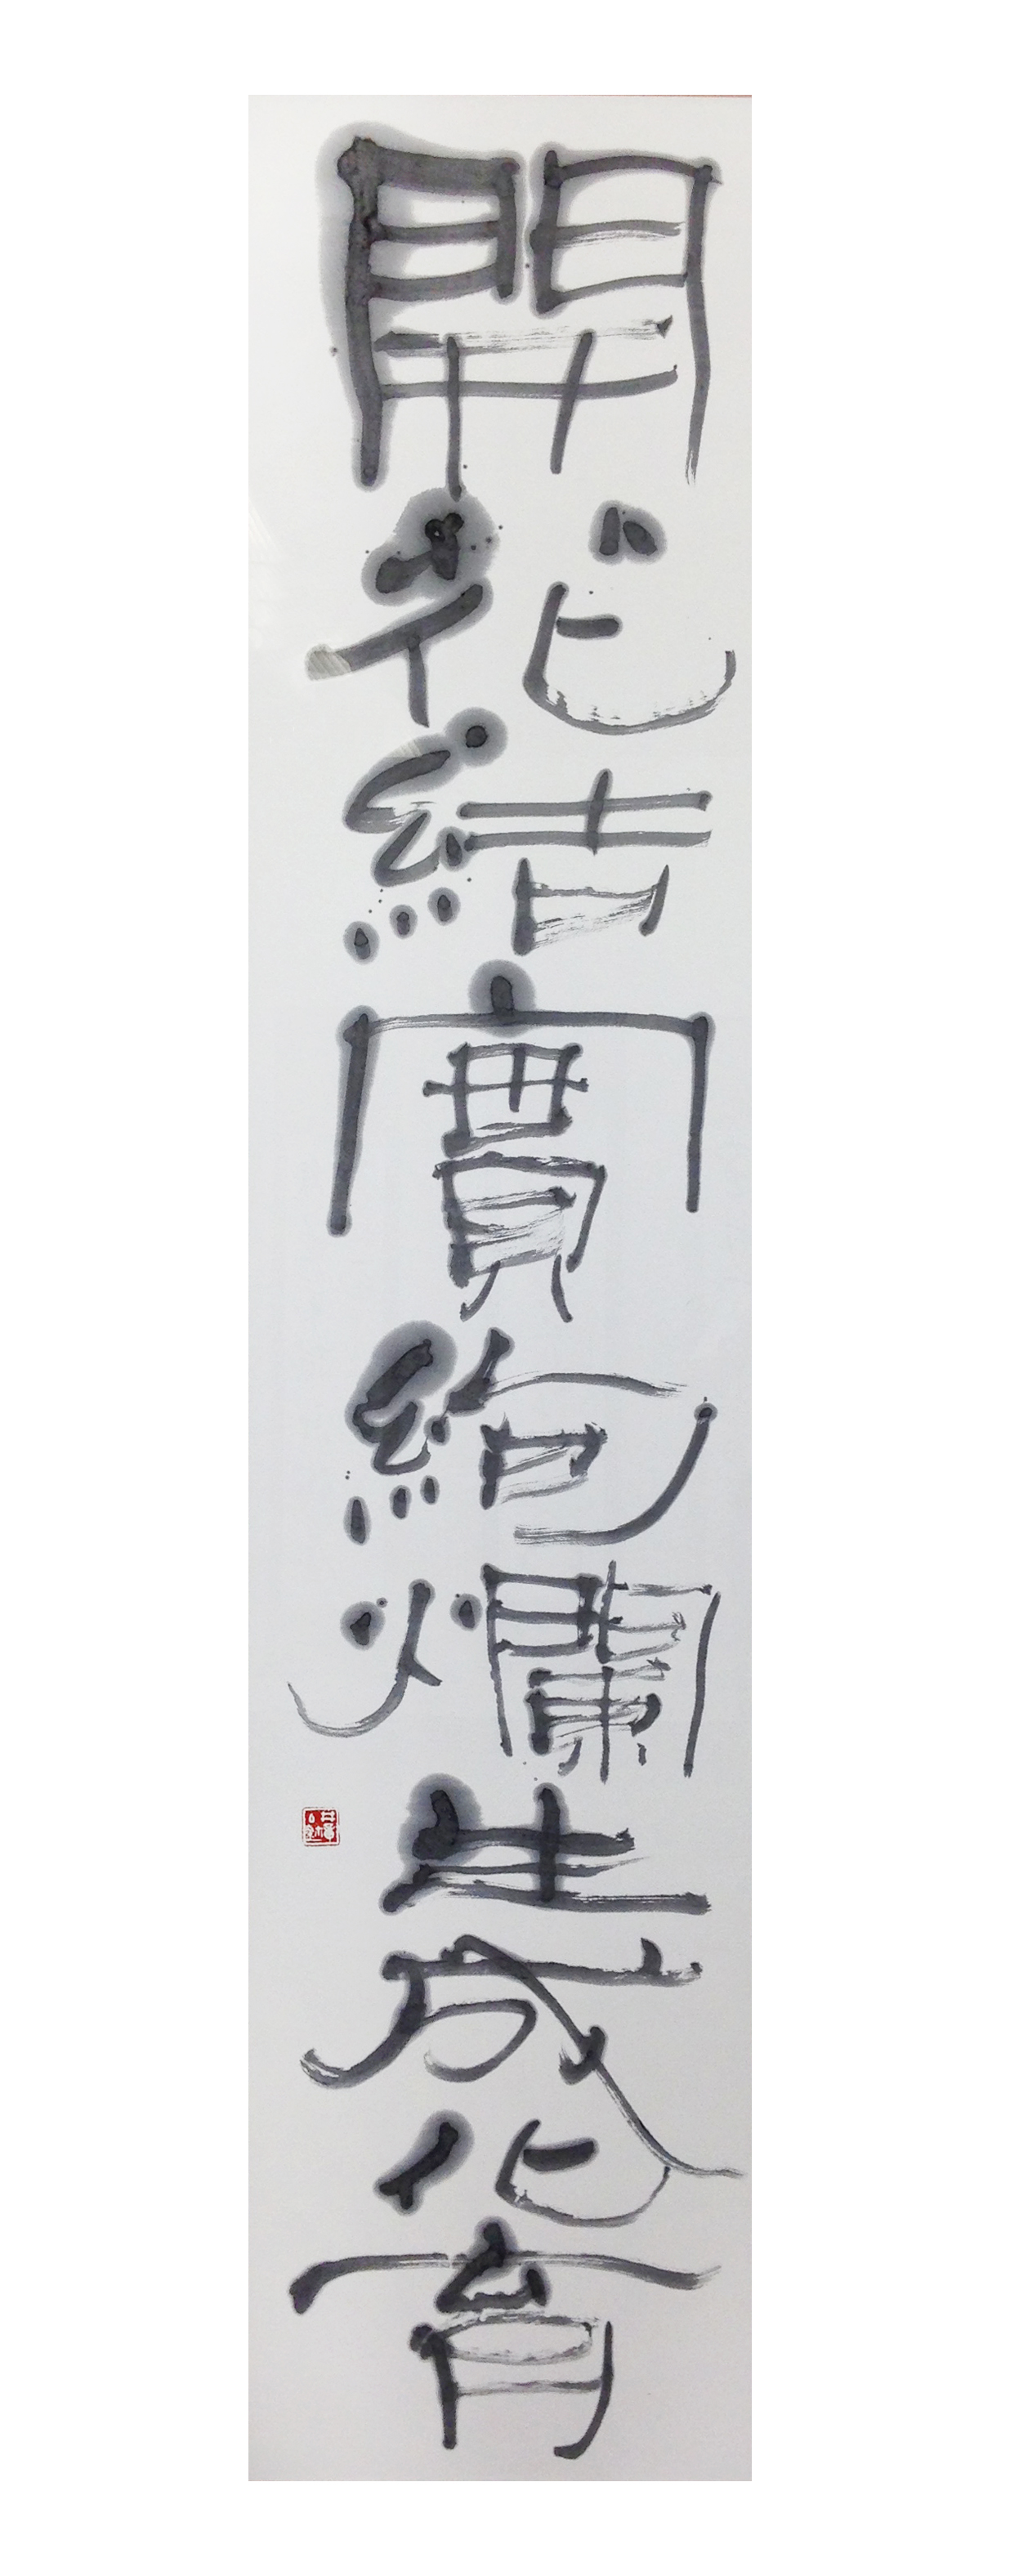 開花結實絢爛生成化育